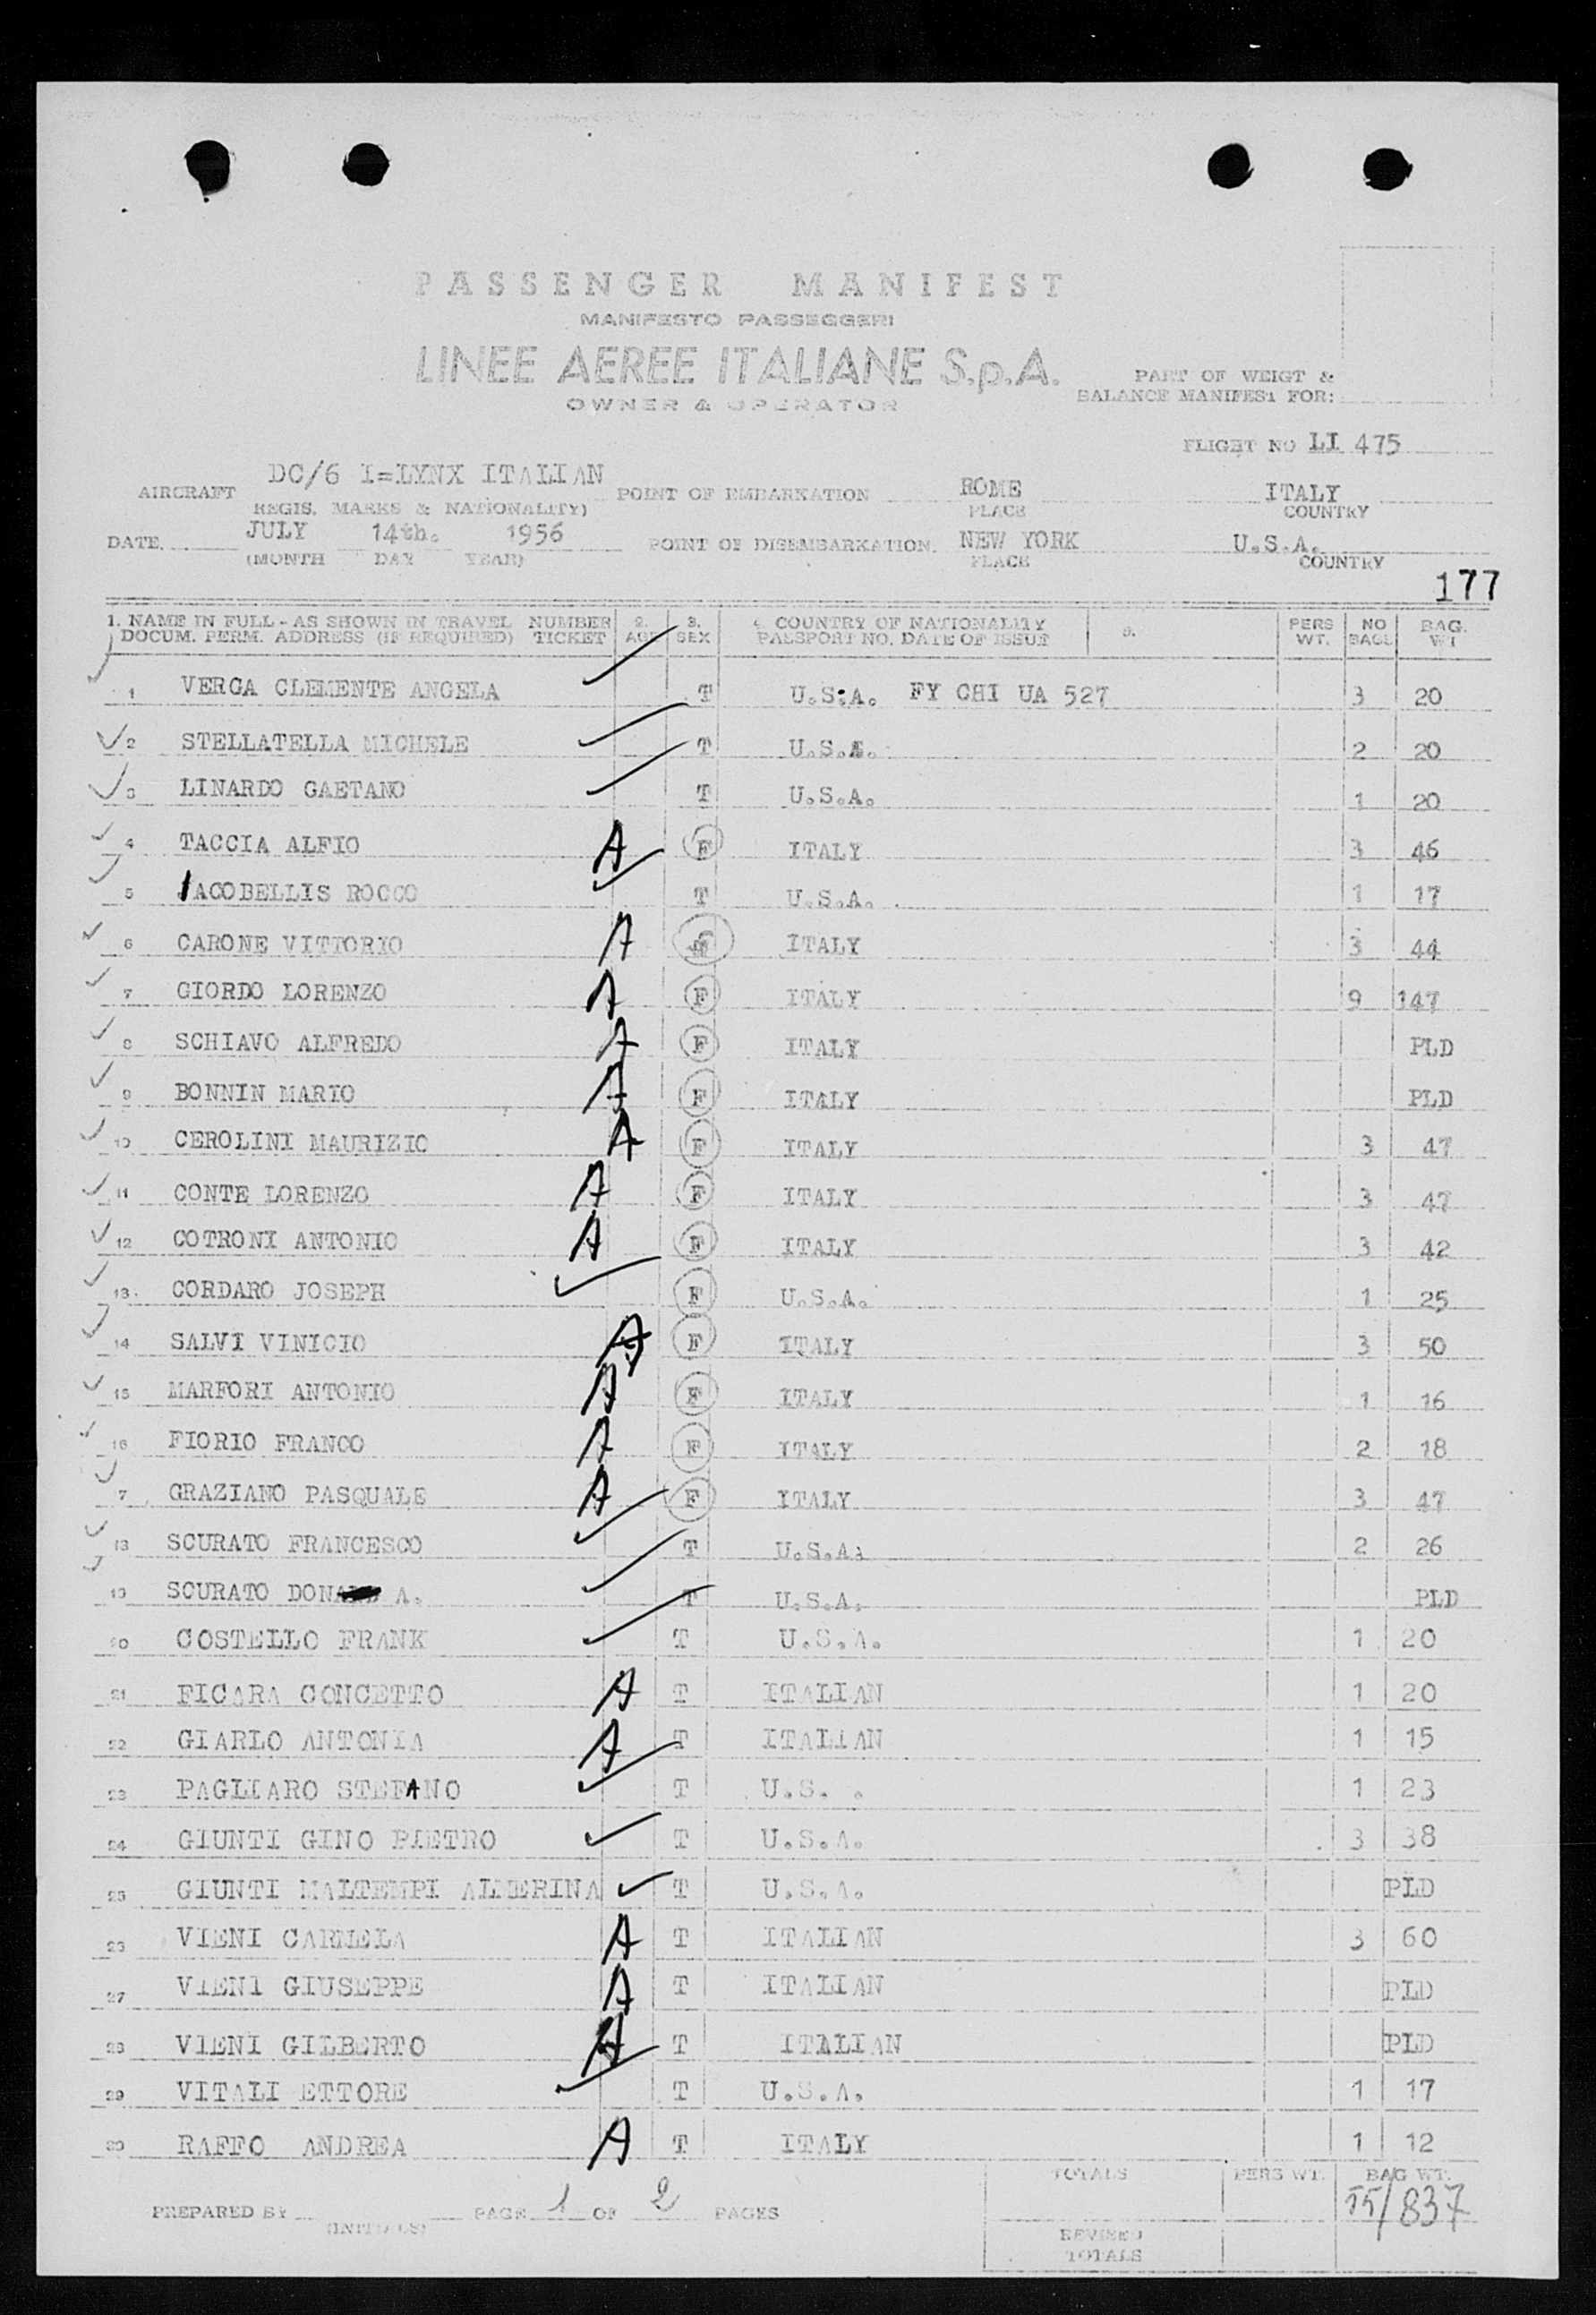 PASSENGER MANIFEST
MANIFESTO PASSEGGERI
LINEE AEREE ITALIANE S.p.A.
OWNER & OPERATOR
PART OF WEIGT &
BALANCE MANIFEST FOR:
FLIGHT NO LI 475
AIRCRAFT DC/6 I=LYNX ITALIAN POINT OF EMBARKATION ROME ITALY
REGIS. MARKS & NATIONALITY) PLACE COUNTRY
DATE. JULY 14th. 1956 POINT OF DISEMBARKATION. NEW YORK U.S.A.
(MONTH DAY YEAR) PLACE COUNTRY
177
1. NAME IN FULL - AS SHOWN IN TRAVEL NUMBER 2. 3. 4. COUNTRY OF NATIONALITY 5. PERS NO BAG.
DOCUM. PERM. ADDRESS (IF REQUIRED) TICKET AGE SEX PASSPORT NO. DATE OF ISSUE WT. BAGS WT
1 VERGA CLEMENTE ANGELA T U.S.A. FY CHI UA 527 3 20
2 STELLATELLA MICHELE T U.S.A. 2 20
3 LINARDO GAETANO T U.S.A. 1 20
4 TACCIA ALFIO A F ITALY 3 46
5 IACOBELLIS ROCCO T U.S.A. 1 17
6 CARONE VITTORIO A ITALY 3 44
7 GIORDO LORENZO A F ITALY 9 147
8 SCHIAVO ALFREDO A F ITALY PLD
9 BONNIN MARIO A F ITALY PLD
10 CEROLINI MAURIZIO A F ITALY 3 47
11 CONTE LORENZO A F ITALY 3 47
12 COTRONI ANTONIO A F ITALY 3 42
13. CORDARO JOSEPH F U.S.A. 1 25
14 SALVI VINICIO A F ITALY 3 50
15 MARFORI ANTONIO A F ITALY 1 16
16 FIORIO FRANCO A F ITALY 2 18
7 GRAZIANO PASQUALE A F ITALY 3 47
18 SCURATO FRANCESCO T U.S.A. 2 26
19 SCURATO DONA A. T U.S.A. PLD
20 COSTELLO FRANK T U.S.A. 1 20
21 FICARA CONCETTO A T ITALIAN 1 20
22 GIARLO ANTONIA A T ITALIAN 1 15
23 PAGLIARO STEFANO T U.S. . 1 23
24 GIUNTI GINO PIETRO T U.S.A. 3 38
25 GIUNTI MALTEMPI ALMERINA T U.S.A. PLD
26 VIENI CARMELA A T ITALIAN 3 60
27 VIENI GIUSEPPE A T ITALIAN PLD
28 VIENI GILBERTO A T ITALIAN PLD
29 VITALI ETTORE T U.S.A. 1 17
30 RAFFO ANDREA A T ITALY 1 12
TOTALS PERS WT. BAG WT.
PREPARED BY PAGE 1 OF 2 PAGES 55/837
(INITIALS)
REVISED
TOTALS